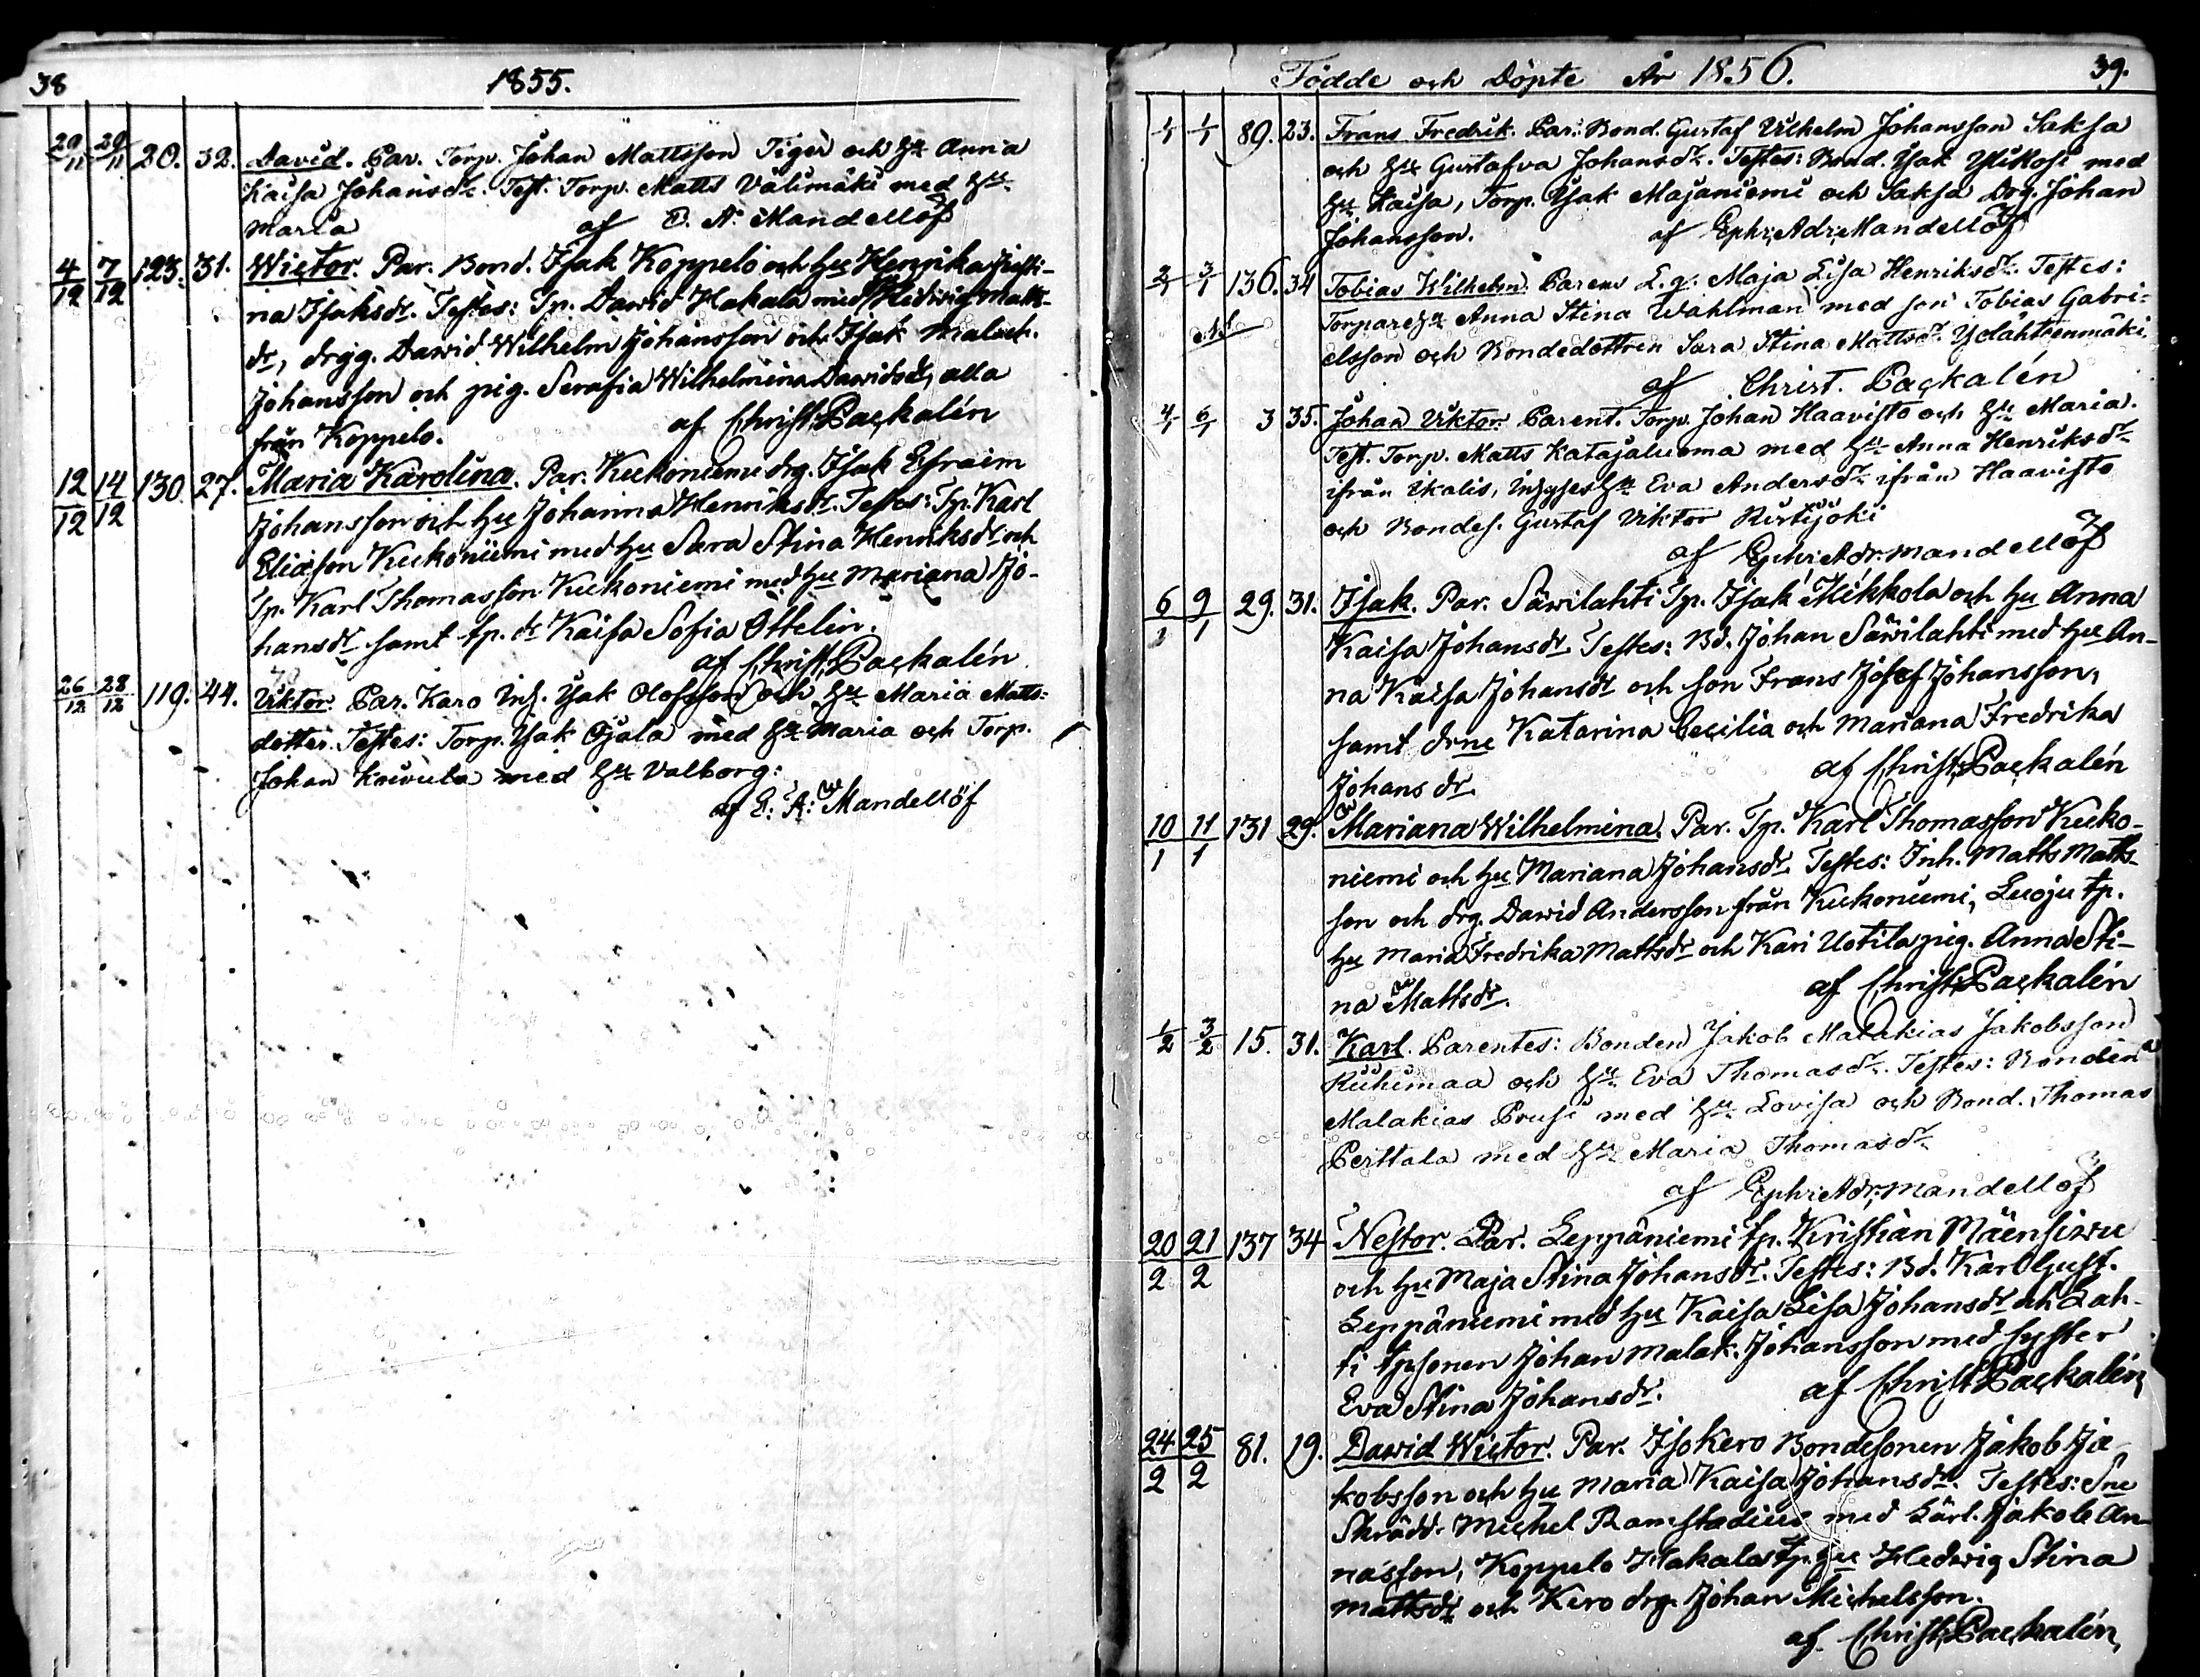 38
1855.
29/11 29/11 20. 32. David. Par. Torp. Johan Mattsson Tiger och Hu Anna
Kaisa Johansdr. Test. Torp. Matts Välimäki med Hu
Maria af E. A. Mandellöf
4/12 7/12 123. 31. Wictor. Par. Bond. Isak Koppelo och Hu Henrika Justi-
na Isaksdr. Testes: Tp. Dawid Hakala med Hedwig Matts-
dr, drgg. Dawid Wilhelm Johansson och Isak Malach.
Johansson och pig. Serafia Wilhelmina Dawidsdr, alla
från Koppelo. af Christ. Packalén
12/12 14/12 130. 27. Maria Karolina. Par. Kuckoniemi drg. Isak Efraim
Johansson och hu Johanna Henriksdr. Testes: Tp. Karl
Eliasson Kuckoniemi med hu Sara Stina Henriksdr och
Tp. Karl Thomasson Kuckoniemi med hu Mariana Jo-
hansdr samt tp. dr Kaisa Sofia Ottelin.
af Christ. Packalén
26/12 28/12 119. 44. Viktor. Par. Karo Inh. Isak Olofsson och Hu Maria Matts-
dotter. Testes: Torp. Isak Ojala med Hu Maria och Torp.
Johan Koivula med Hu Valborg:
af E. A: Mandellöf
Födde och Döpte År 1856. 39.
1/1 1/1 89. 23. Frans Fredrik. Par: Bond. Gustaf Vilhelm Johansson Saksa
och Hu Gustafva Johansdr. Testes: Bond. Isak Ylikosi med
Hu Kaisa, Torp. Isak Majaniemi och Saksa Drg. Johan
Johansson. af Ephr. Adr. Mandellöf
2/1 3/1 136. 34 Tobias Wilhelm. Parens L. q. Maja Lisa Henriksdr. Testes:
Torpare Hu Anna Stina Wahlman med son Tobias Gabri-
elsson och Bondedottren Sara Stina Mattsdr. Yolähteenmäki.
af Christ. Packalén
4/1 6/1 3 35. Johan Viktor. Parent. Torp. Johan Haavisto och Hu Maria.
Test. Torp. Matts Katajaluoma med Hu Anna Henriksdr
ifrån Ikalis, Inhyses Hu Eva Andersdr ifrån Haavisto
och Bondes. Gustaf Viktor Ristijoki
af Ephr. Adr. Mandellöf
6/1 9/1 29. 31. Isak. Par. Säwilahti Tp. Isak Mikkola och hu Anna
Kaisa Johansdr. Testes: Bd. Johan Säwilahti med hu An-
na Kaisa Johansdr och son Frans Josef Johansson,
samt drne Katarina Cecilia och Mariana Fredrika
Johansdr. af Christ. Packalén
10/1 11/1 131 29. Mariana Wilhelmina. Par. Tp. Karl Thomasson Kucko-
niemi och hu Mariana Johansdr. Testes: Inh. Matts Matts-
son och drg. Dawid Andersson från Kuckoniemi, Luoju tp.
hu Maria Fredrika Mattsdr och Kari Uotila pig. Anna Sti-
na Mattsdr. af Christ. Packalén
1/2 3/2 15. 31. Karl. Parentes: Bonden Jakob Malakias Jakobsson
Riihimaa och Hu Eva Thomasdr. Testes: Bonden
Malakias Prusi med Hu Lovisa och Bond. Thomas
Perttala med Hu Maria Thomasdr
af Ephr. Adr. Mandellöf
20/2 21/2 137 34 Nestor. Par. Leppäniemi tp. Kristian Mäensiwu
och hu Maja Stina Johansdr. Testes: Bd. Karl Gust.
Leppäniemi med hu Kaisa Lisa Johansdr och Lah-
ti tpsonen Johan Malak. Johansson med syster
Eva Stina Johansdr. af Christ. Packalén
24/2 25/2 81. 19. Dawid Wictor. Par. Isokero Bondesonen Jakob Ja-
kobsson och hu Maria Kaisa Johansdr. Testes: Sne
Skrädd. Michel Ramstadius med Lärl. Jakob An-
nasson, Koppelo Hakala tp. hu Hedwig Stina
Mattsdr och Kero drg. Johan Michelsson.
af Christ. Packalén